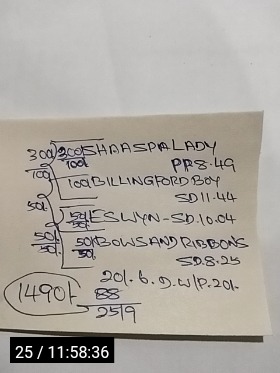 300/ 200/SHAASPALADY
100/ 100/ PP8.49
100/BILLINGFORDBOY
SD11.44
50/ 50/ESLWYN-SD.10.04
50/
50/ 50/BOWSANDRIBBONS
50/ 50/ SD.8.25
20/. 6. D.W/P.20/.
1490/- 88
2519
25 / 11:58:36